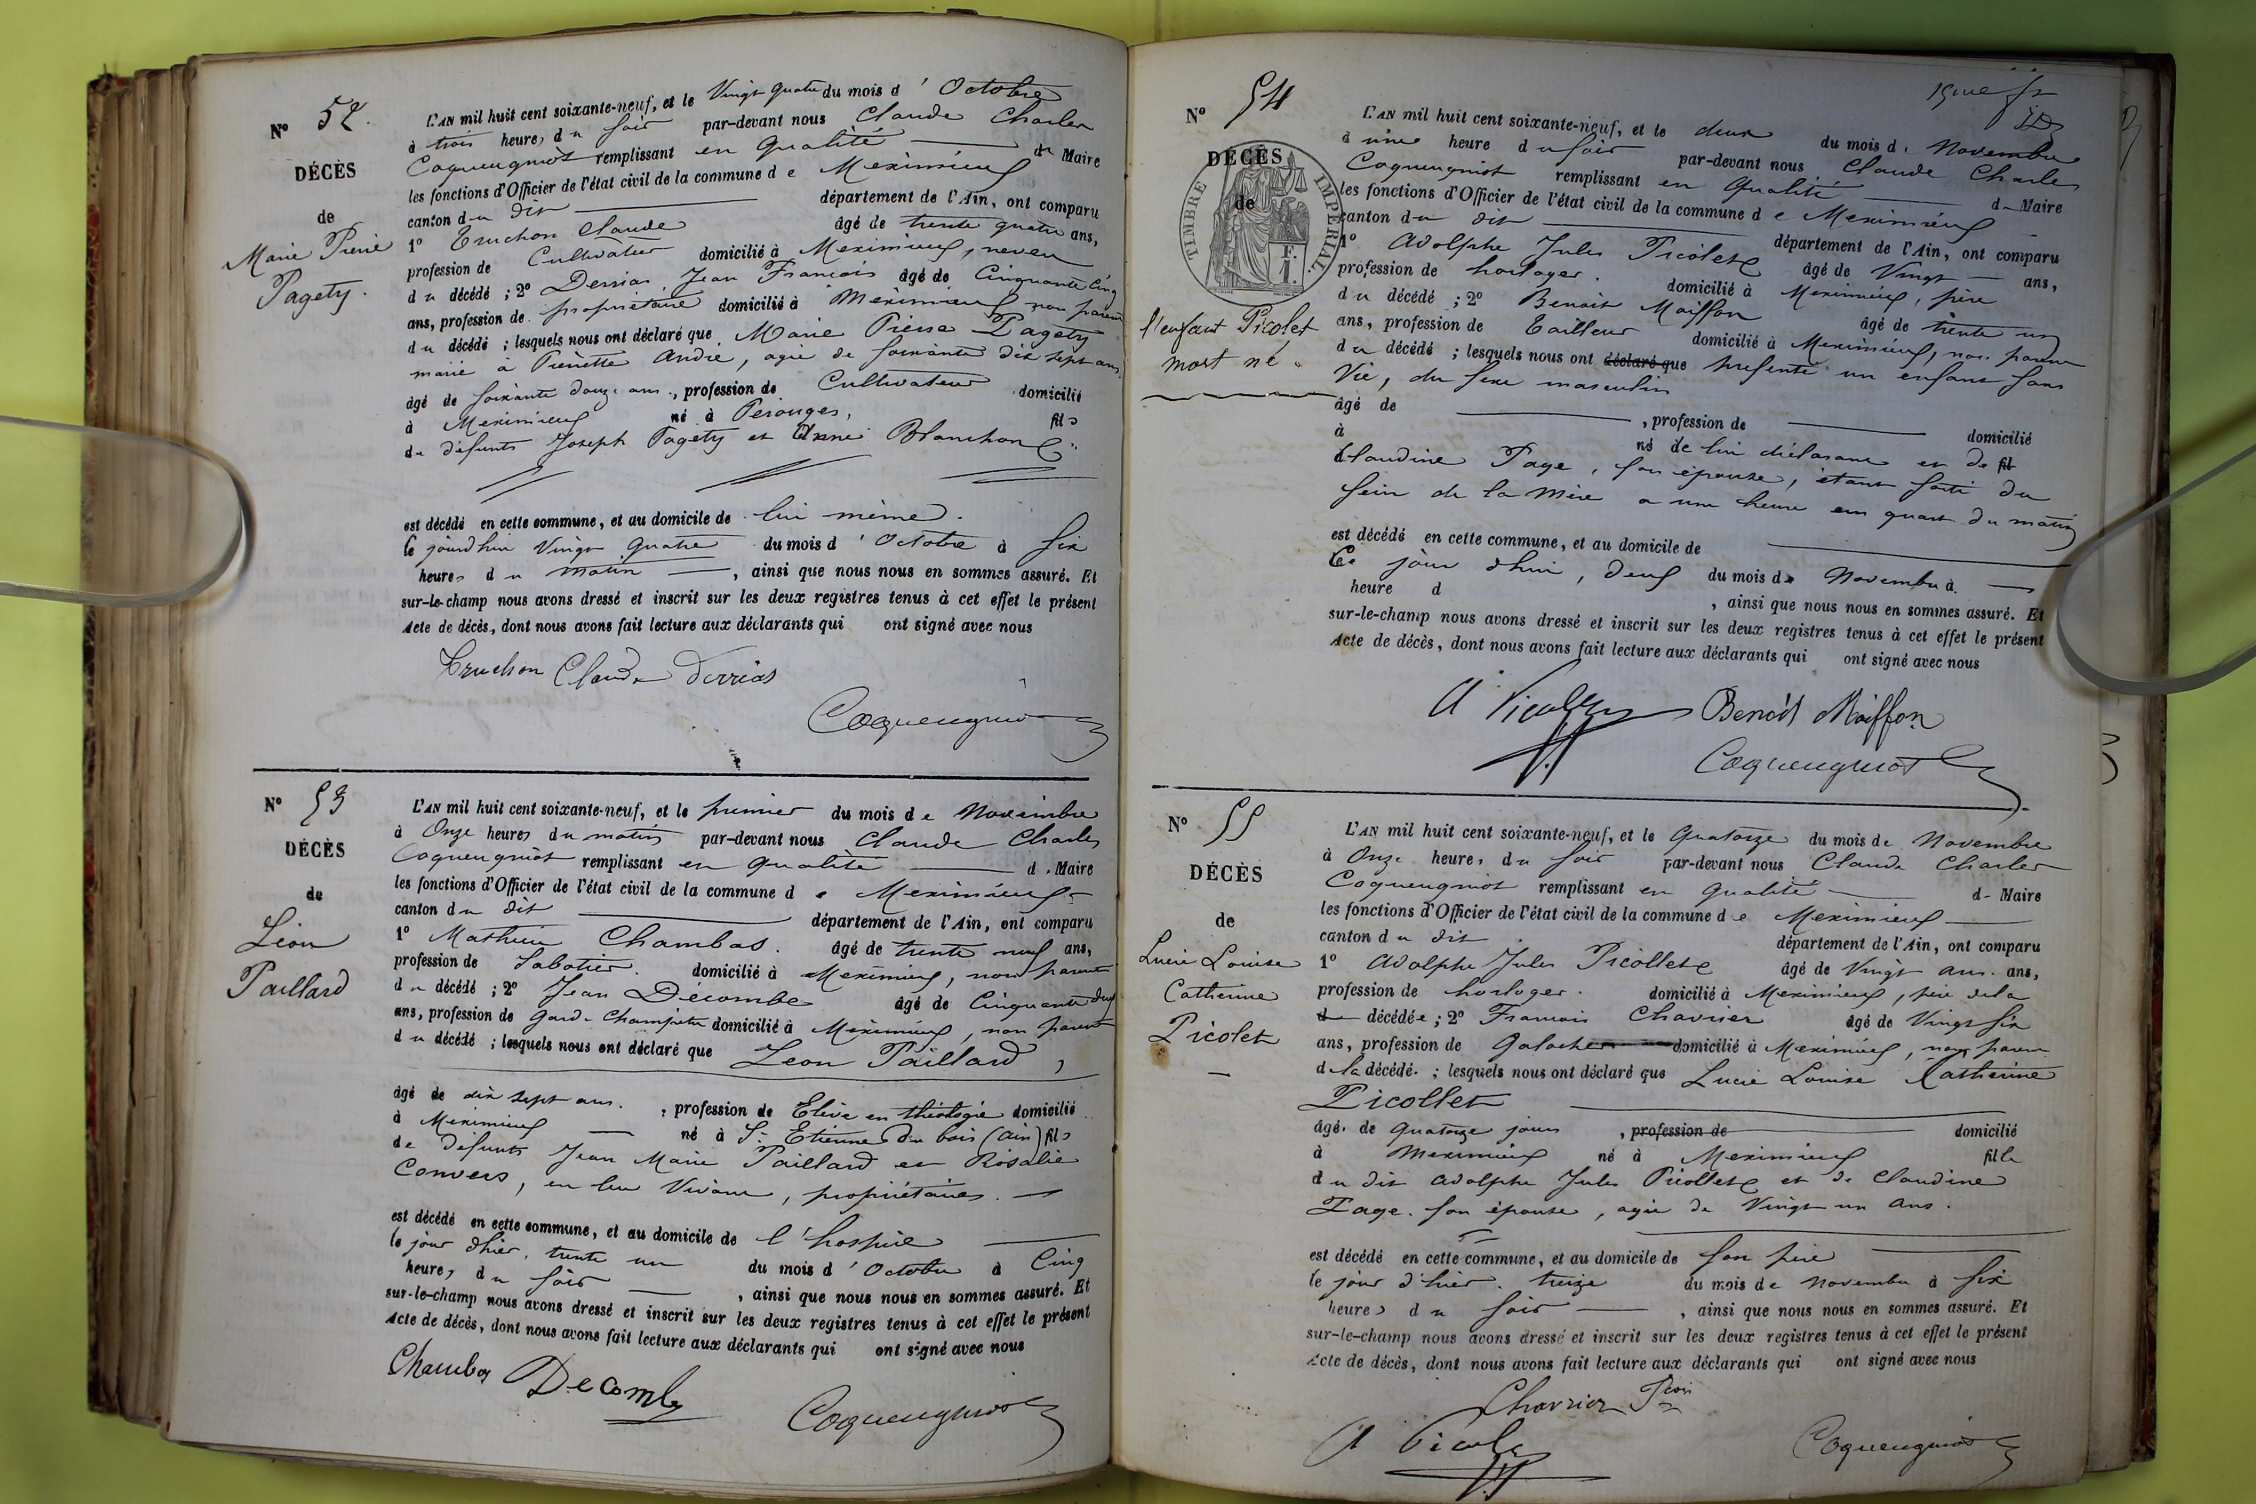 N° 52.
DÉCÈS
de
Marie Pierre
Pagety.
L'AN mil huit cent soixante-neuf, et le Vingt quatre du mois d' Octobre
à trois heures du soir par-devant nous Claude Charles
Coqueugniot remplissant en qualité du Maire
les fonctions d'Officier de l'état civil de la commune de Meximieux
canton du dit département de l'Ain, ont comparu
1° Truchon Claude âgé de trente quatre ans,
profession de Cultivateur domicilié à Meximieux, neveu
du décédé ; 2° Derrias Jean François âgé de Cinquante cinq
ans, profession de propriétaire domicilié à Meximieux non parent
du décédé ; lesquels nous ont déclaré que Marie Pierre Pagety
marié à Pierrette André, agée de soixante dix sept ans
âgé de soixante douze ans, profession de Cultivateur domicilié
à Meximieux né à Perouges, fils
de défunts Joseph Pagety et Anne Blanchon
est décédé en cette commune, et au domicile de lui même.
le jourdhui Vingt quatre du mois d' Octobre à six
heures du matin, ainsi que nous nous en sommes assuré. Et
sur-le-champ nous avons dressé et inscrit sur les deux registres tenus à cet effet le présent
Acte de décès, dont nous avons fait lecture aux déclarants qui ont signé avec nous
Truchon Claude Derrias
Coqueugniot
N° 53
DÉCÈS
de
Léon
Paillard
L'AN mil huit cent soixante-neuf, et le premier du mois de Novembre
à Onze heures du matin par-devant nous Claude Charles
Coqueugniot remplissant en qualité d. Maire
les fonctions d'Officier de l'état civil de la commune de Meximieux
canton du dit département de l'Ain, ont comparu
1° Mathieu Chambas. âgé de trente neuf ans,
profession de Sabotier. domicilié à Meximieux, non parent
du décédé ; 2° Jean Decombe âgé de Cinquante deux
ans, profession de Garde Champêtre domicilié à Meximieux, non parent
du décédé ; lesquels nous ont déclaré que Léon Paillard,
âgé de dix sept ans. , profession de Elève en théologie domicilié
à Meximieux né à St Etienne du bois (ain) fils
de défunts Jean Marie Paillard et Rosalie
Convers, en leur Vivant, propriétaires.
est décédé en cette commune, et au domicile de l'hospice
le jour d'hier, trente un du mois d' Octobre à Cinq
heures du soir, ainsi que nous nous en sommes assuré. Et
sur-le-champ nous avons dressé et inscrit sur les deux registres tenus à cet effet le présent
Acte de décès, dont nous avons fait lecture aux déclarants qui ont signé avec nous
Chambas Decombe
Coqueugniot
N° 54
DÉCÈS
de
TIMBRE IMPÉRIAL.
F. I.
l'enfant Picolet
mort né.
L'AN mil huit cent soixante-neuf, et le deux du mois de Novembre
à une heure du soir par-devant nous Claude Charles
Coqueugniot remplissant en qualité d Maire
les fonctions d'Officier de l'état civil de la commune de Meximieux
canton du dit département de l'Ain, ont comparu
1° Adolphe Jules Picolet âgé de Vingt ans,
profession de horloger. domicilié à Meximieux, père
du décédé ; 2° Benoit Moiffon âgé de trente un
ans, profession de Tailleur domicilié à Meximieux, non parent
du décédé ; lesquels nous ont déclaré que présenté un enfant sans
Vie, du sexe masculin
âgé de , profession de domicilié
à né de lui déclarant et de fil
Claudine Page, son épouse, étant sorti du
sein de la mère a une heure un quart du matin
est décédé en cette commune, et au domicile de
Ce jour d'hui, deux du mois de Novembre à
heure d , ainsi que nous nous en sommes assuré. Et
sur-le-champ nous avons dressé et inscrit sur les deux registres tenus à cet effet le présent
Acte de décès, dont nous avons fait lecture aux déclarants qui ont signé avec nous
A Picolet Benoit Moiffon
Coqueugniot
N° 55
DÉCÈS
de
Lucie Louise
Catherine
Picolet
L'AN mil huit cent soixante-neuf, et le Quatorze du mois de Novembre
à Onze heures du soir par-devant nous Claude Charles
Coqueugniot remplissant en qualité d Maire
les fonctions d'Officier de l'état civil de la commune de Meximieux
canton du dit département de l'Ain, ont comparu
1° Adolphe Jules Picollet âgé de Vingt ans. ans,
profession de horloger. domicilié à Meximieux, père de la
d décédée ; 2° François Chavrier âgé de Vingt six
ans, profession de Galocher domicilié à Meximieux, non parent
de la décédé. ; lesquels nous ont déclaré que Lucie Louise Catherine
Picollet
âgé. de Quatorze jours , profession de domicilié
à Meximieux né à Meximieux fille
du dit Adolphe Jules Picollet et de Claudine
Page. son épouse, agée de Vingt un ans.
est décédé en cette commune, et au domicile de son père
le jour d'hier. treize du mois de Novembre à six
heures du soir, ainsi que nous nous en sommes assuré. Et
sur-le-champ nous avons dressé et inscrit sur les deux registres tenus à cet effet le présent
Acte de décès, dont nous avons fait lecture aux déclarants qui ont signé avec nous
Chavrier
A Picolet Coqueugniot